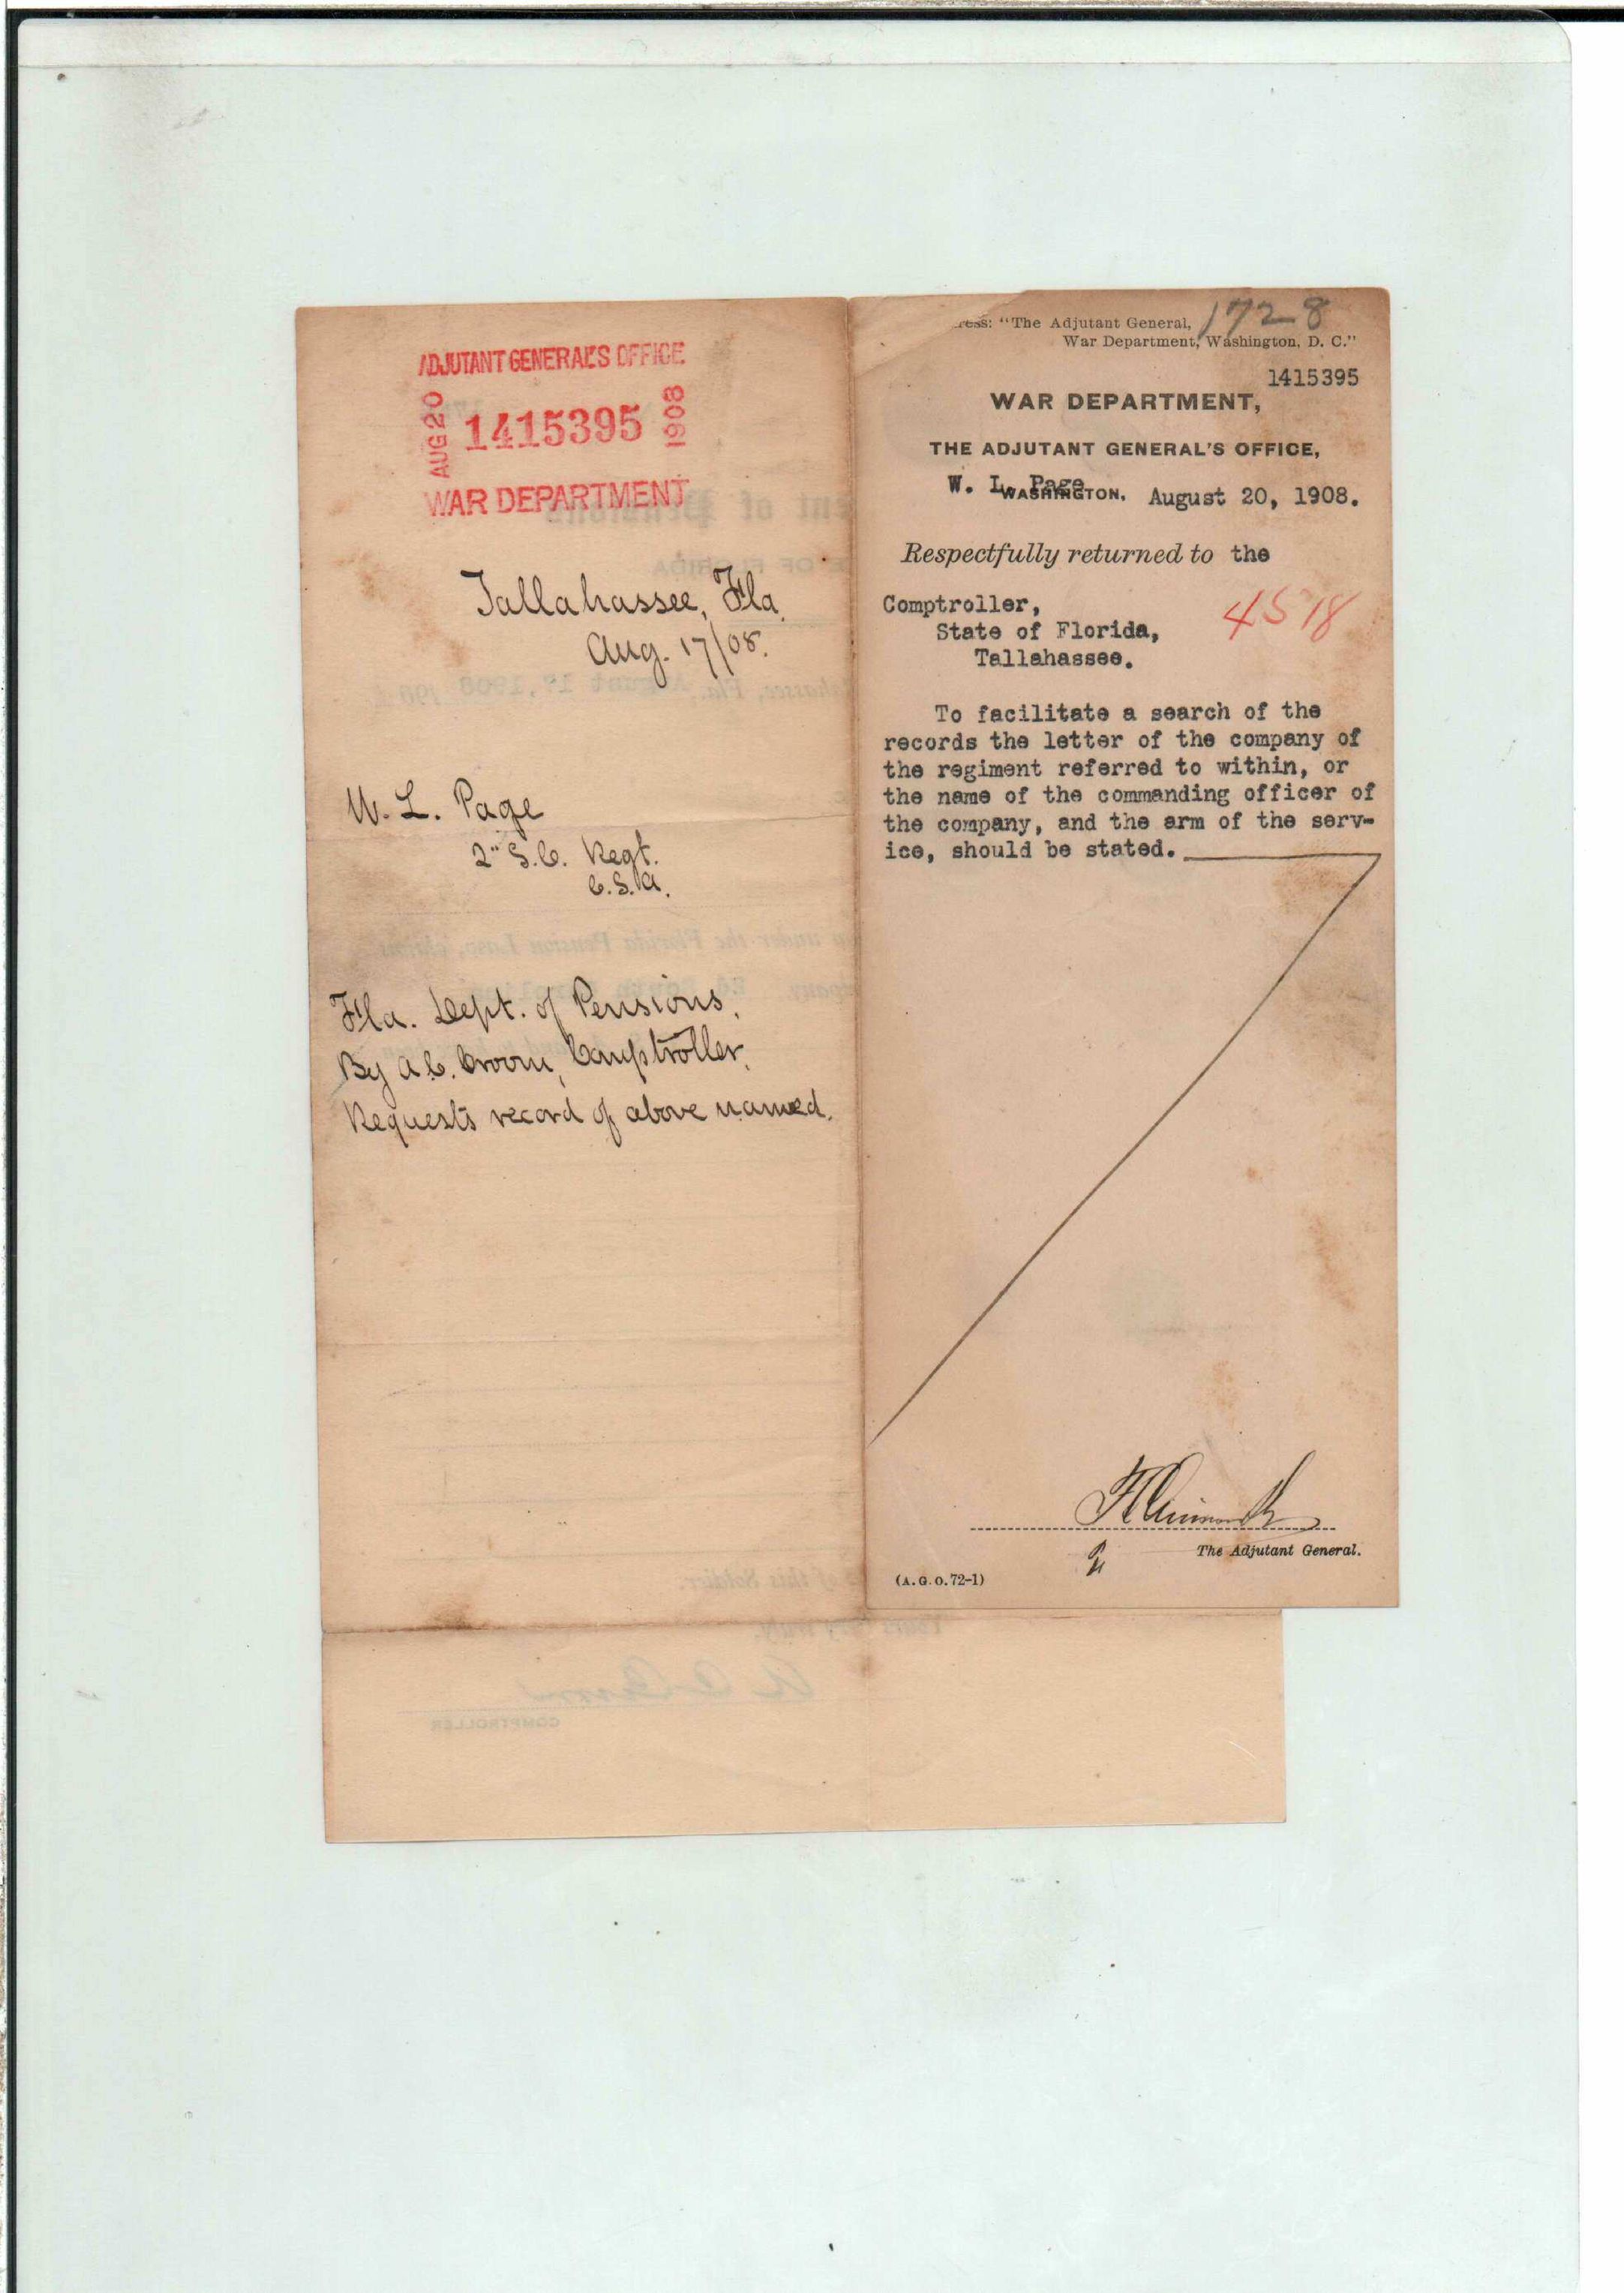 ADJUTANT GENERAL'S OFFICE
AUG 20 1415395 1908
WAR DEPARTMENT
Tallahassee, Fla.
Aug. 17/08.
W. L. Page
2" S.C. Regt.
C.S.A.
Fla. Dept. of Pensions,
By A.C. Croom, Comptroller.
Requests record of above named.
1728
ress: "The Adjutant General,
War Department, Washington, D. C."
1415395
WAR DEPARTMENT,
THE ADJUTANT GENERAL'S OFFICE,
W. L. Page
WASHINGTON, August 20, 1908.
Respectfully returned to the
Comptroller,
4518
State of Florida,
Tallahassee.
To facilitate a search of the
records the letter of the company of
the regiment referred to within, or
the name of the commanding officer of
the company, and the arm of the serv-
ice, should be stated.
The Adjutant General.
(A.G.O.72-1)
COMPTROLLER